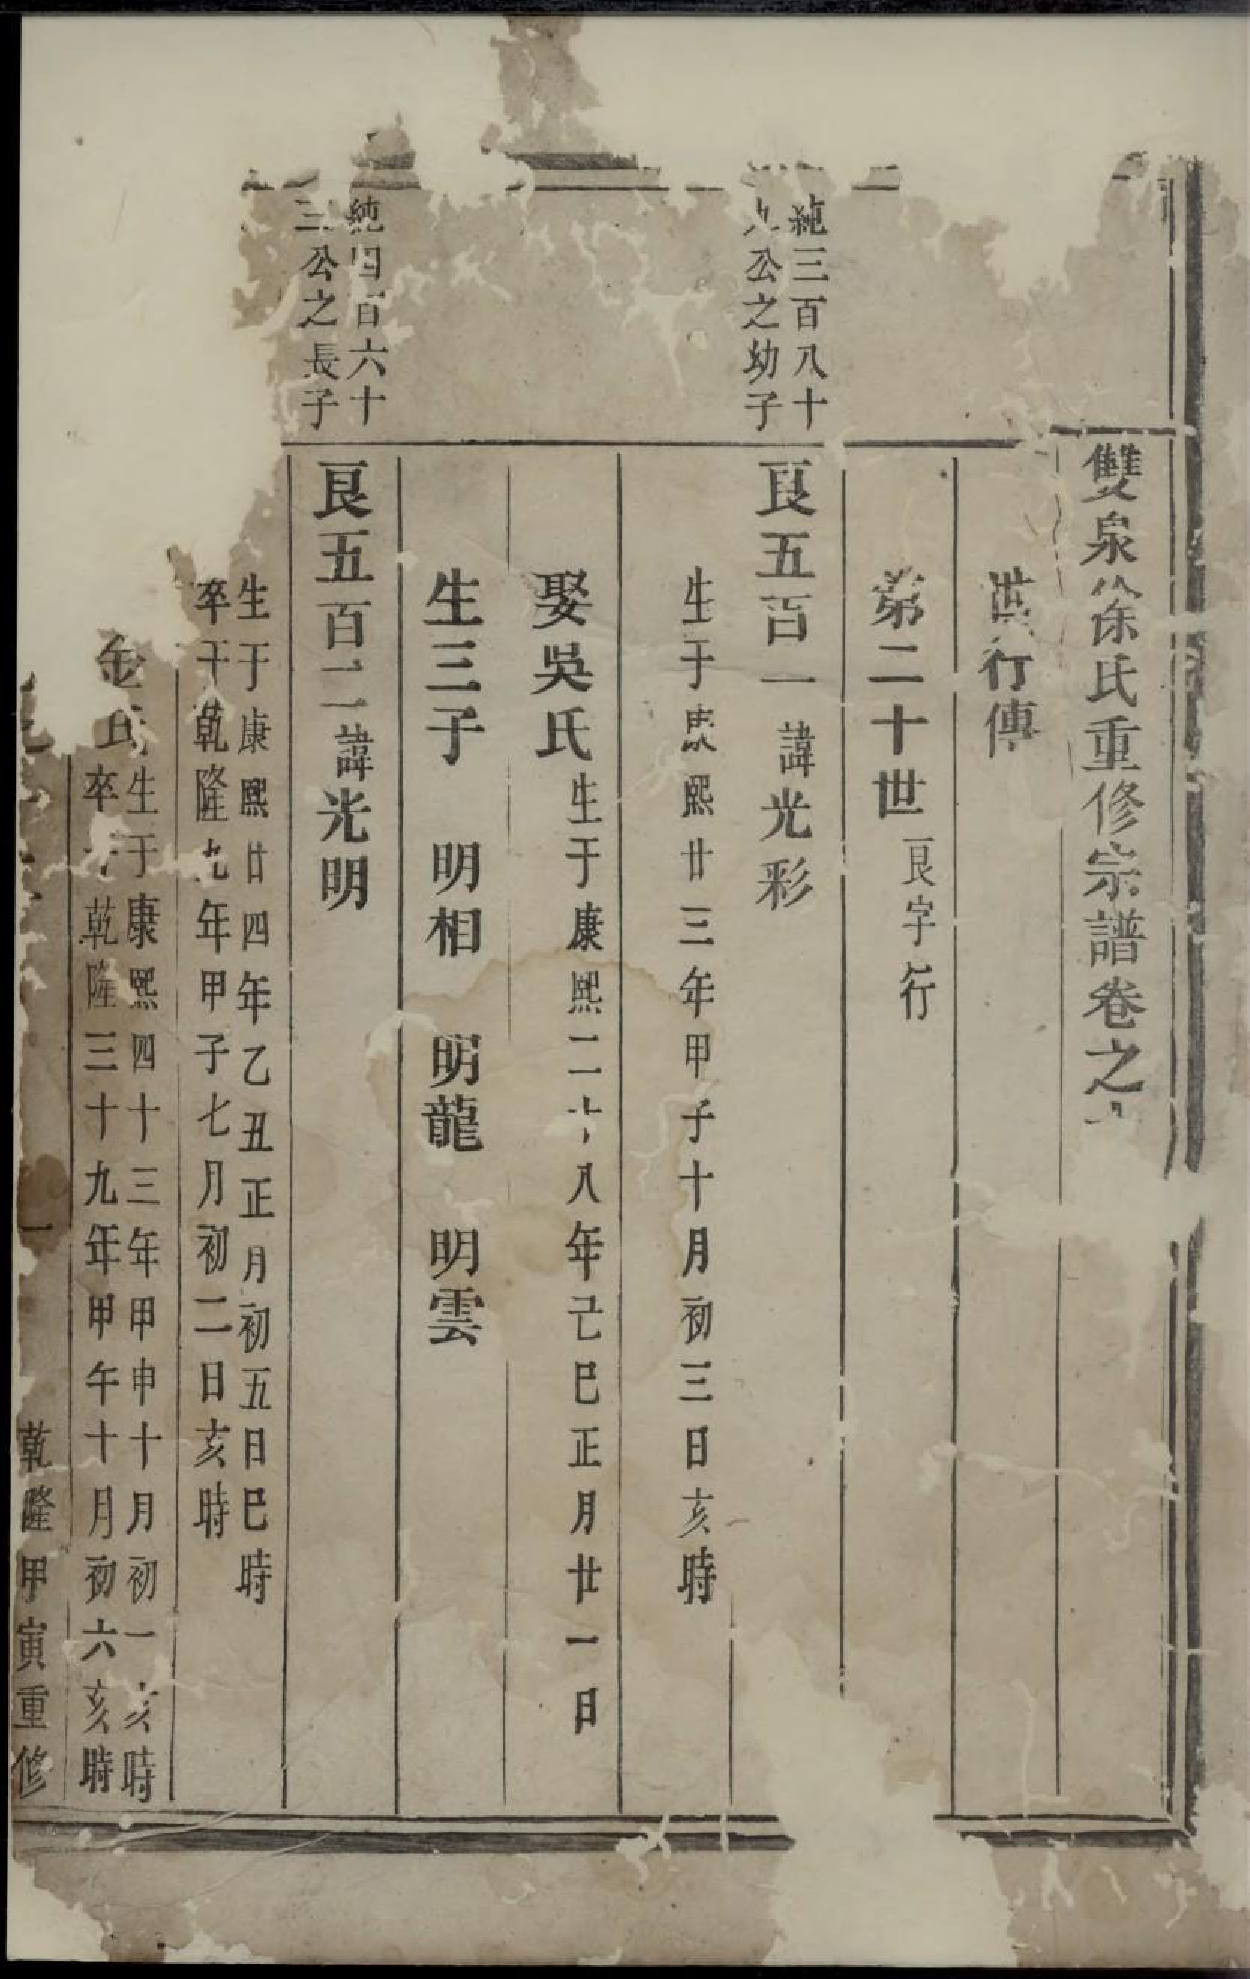 雙泉徐氏重修宗譜卷之
世行傳
第二十世 良字行
純三百八十
九公之幼子
良五百一 諱光彩
生于康熙廿三年甲子十月初三日亥時
娶吳氏 生于康熙二十八年己巳正月廿一日
生三子 明相 明龍 明雲
純四百六十
三公之長子
良五百二 諱光明
生于康熙廿四年乙丑正月初五日巳時
卒于乾隆九年甲子七月初二日亥時
金氏 生于康熙四十三年甲申十月初一亥時
卒于乾隆三十九年甲午十月初六亥時
一 乾隆甲寅重修